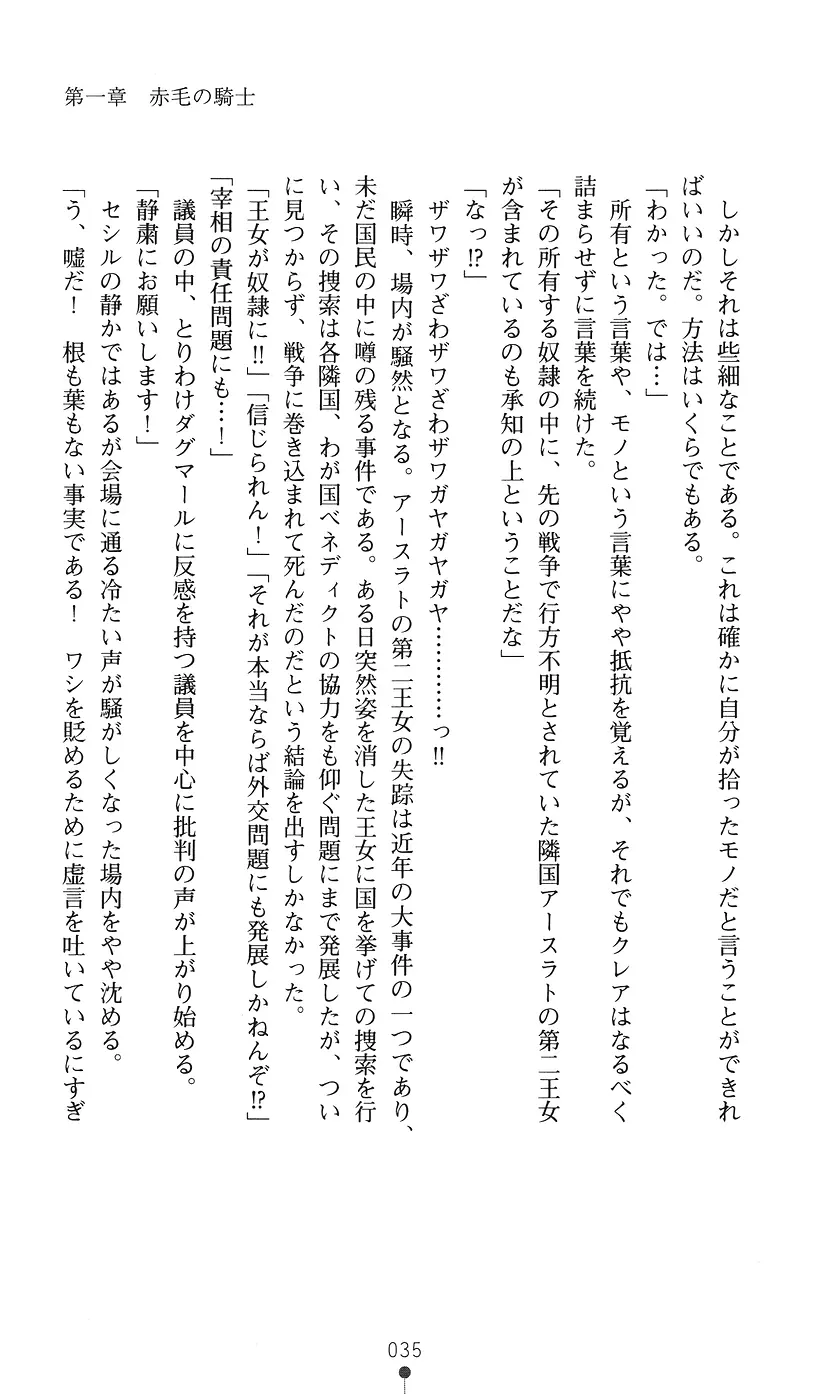 第一章　赤毛の騎士
　しかしそれは些細なことである。これは確かに自分が拾ったモノだと言うことができれ
ばいいのだ。方法はいくらでもある。
「わかった。では…」
　所有という言葉や、モノという言葉にやや抵抗を覚えるが、それでもクレアはなるべく
詰まらせずに言葉を続けた。
「その所有する奴隷の中に、先の戦争で行方不明とされていた隣国アースラトの第二王女
が含まれているのも承知の上ということだな」
「なっ⁉」
　ザワザワざわザワざわザワガヤガヤ…………っ‼
　瞬時、場内が騒然となる。アースラトの第二王女の失踪は近年の大事件の一つであり、
未だ国民の中に噂の残る事件である。ある日突然姿を消した王女に国を挙げての捜索を行
い、その捜索は各隣国、わが国ベネディクトの協力をも仰ぐ問題にまで発展したが、つい
に見つからず、戦争に巻き込まれて死んだのだという結論を出すしかなかった。
「王女が奴隷に‼」「信じられん！」「それが本当ならば外交問題にも発展しかねんぞ⁉」
「宰相の責任問題にも…！」
　議員の中、とりわけダグマールに反感を持つ議員を中心に批判の声が上がり始める。
「静粛にお願いします！」
　セシルの静かではあるが会場に通る冷たい声が騒がしくなった場内をやや沈める。
「う、嘘だ！　根も葉もない事実である！　ワシを貶めるために虚言を吐いているにすぎ
035